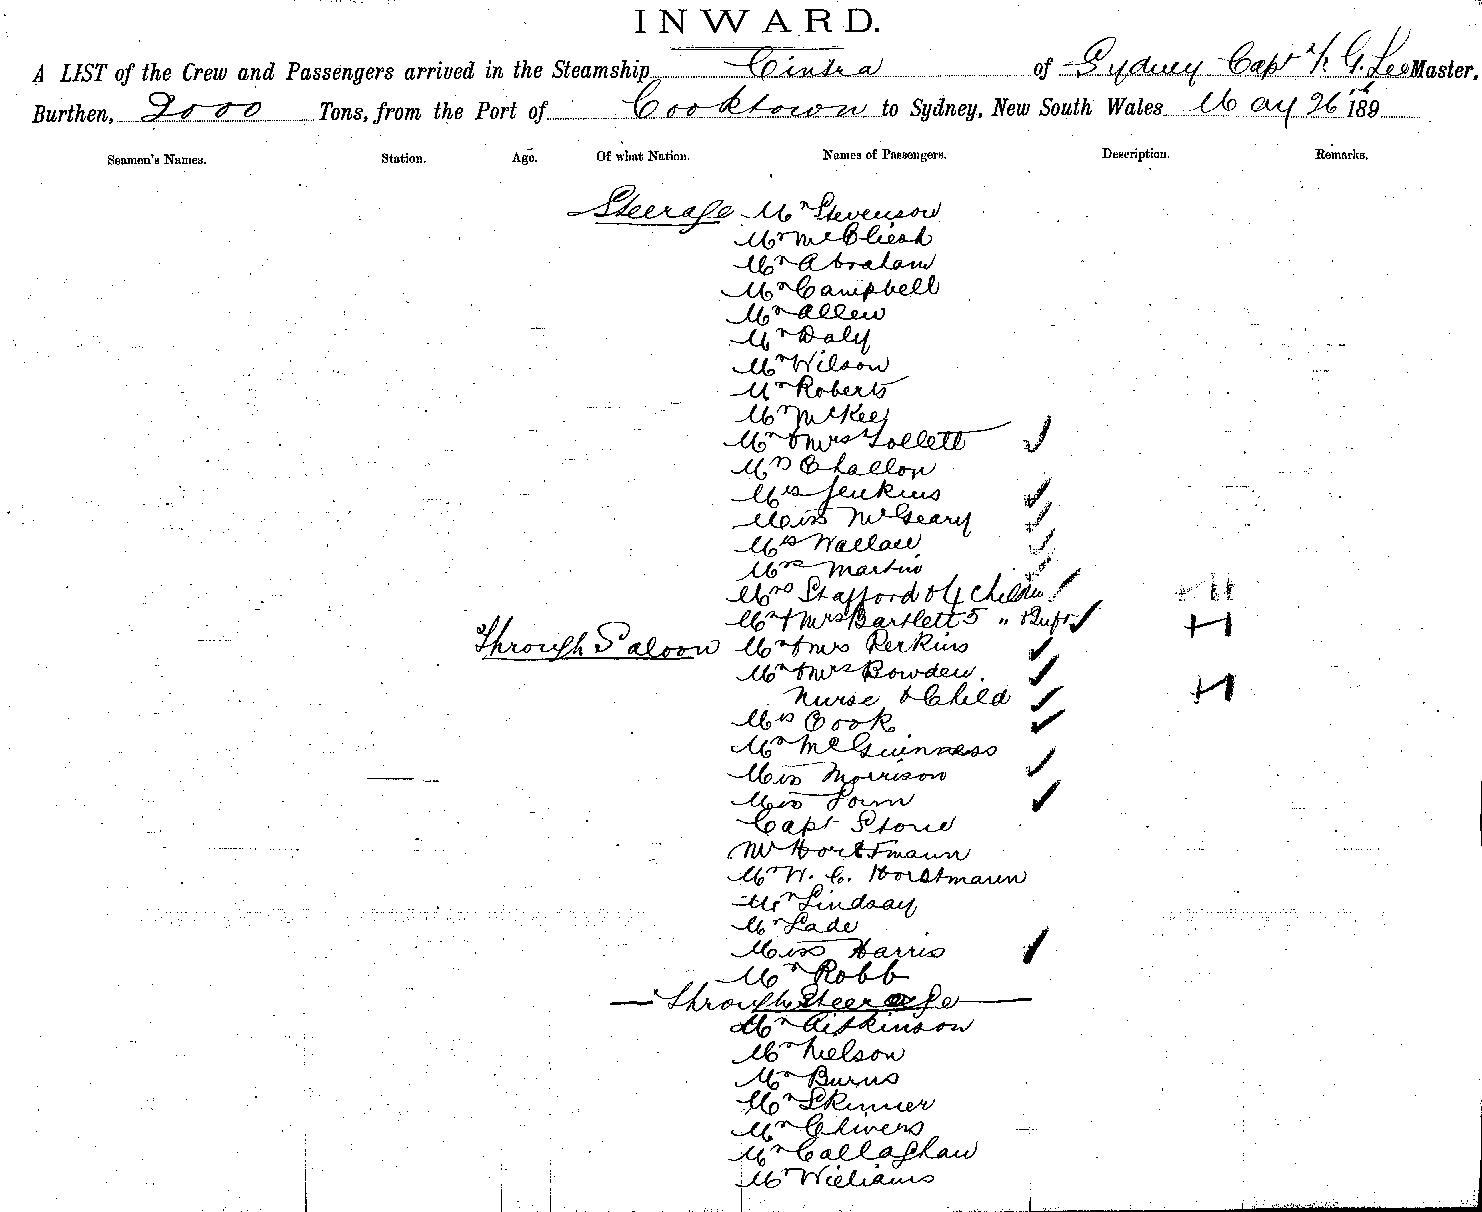 INWARD.
A LIST of the Crew and Passengers arrived in the Steamship Cintra of Sydney Capt G. Lee Master,
Burthen, 2000 Tons, from the Port of Cooktown to Sydney, New South Wales May 26th 189
Seamen's Names. Station. Age. Of what Nation. Names of Passengers. Description. Remarks.
Steerage Mr Stevenson
Mr
Mr Abraham
Mr Campbell
Mr Allen
Mr Daly
Mr Wilson
Mr Roberts
Mr McKee
Mr & Mrs Tollett
Challon
Mrs Jenkins
Miss McGeary
Mrs Wallace
Mrs Martin
Mrs Stafford & 4 Children
Mr & Mrs Bartlett 5 "
Through Saloon Mr & Mrs Perkins
Mr & Mrs Bowden.
Nurse & Child
Mrs Cook
Mr McGuinness
Miss Morrison
Miss
Capt Stone
Mr Horstmann
Mr W. C. Horstmann
Mr Lindsay
Mr Lade
Miss Harris
Mr Robb
Through Steerage
Mr Aitkinson
Mr Nelson
Mr Burns
Mr Skinner
Mr Chivers
Mr Callaghan
Mr Williams